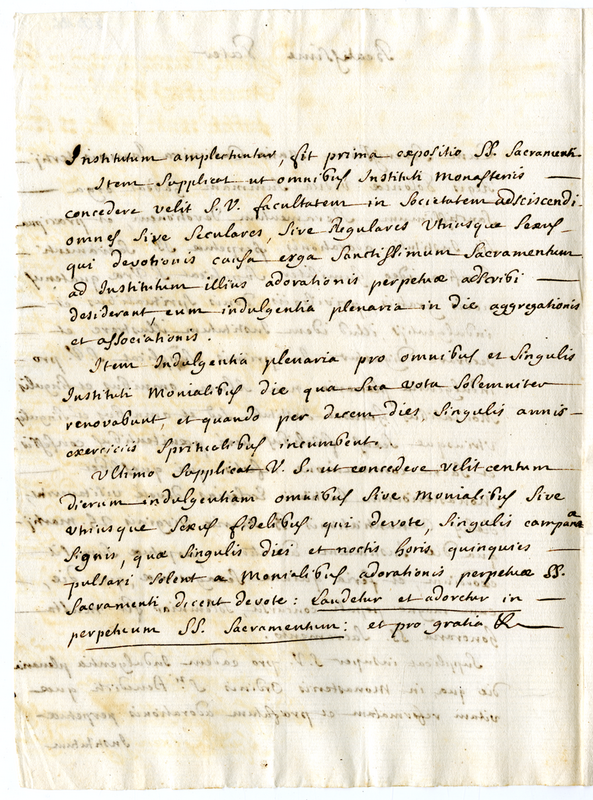 Institutum amplectuntur, fit prima expositio SS. Sacramenti.
Item Supplicat ut omnibus Instituti Monasteriis
concedere velit S. V. facultatem in Societatem adsciscendi
omnes sive Seculares, sive Regulares Utriusque Sexus
qui devotionis causa erga Sanctissimum Sacramentum
ad Institutum illius adorationis perpetuæ adscribi
desiderant, cum indulgentia plenaria in die aggregationis
et associationis.
Item Indulgentia plenaria pro omnibus et singulis
Instituti Monialibus die qua sua vota solemniter
renovabunt, et quando per decem dies, singulis annis
exerciciis spiritualibus incumbent.
Ultimo Supplicat V. S. ut concedere velit centum
dierum indulgentiam omnibus sive Monialibus sive
utriusque Sexus fidelibus qui devote, singulis campanæ
signis, quæ singulis diei et noctis horis, quinquies
pulsari solent a Monialibus adorationis perpetuæ SS.
Sacramenti, dicent devote: Laudetur et adoretur in
perpetuum SS. Sacramentum: et pro gratia &